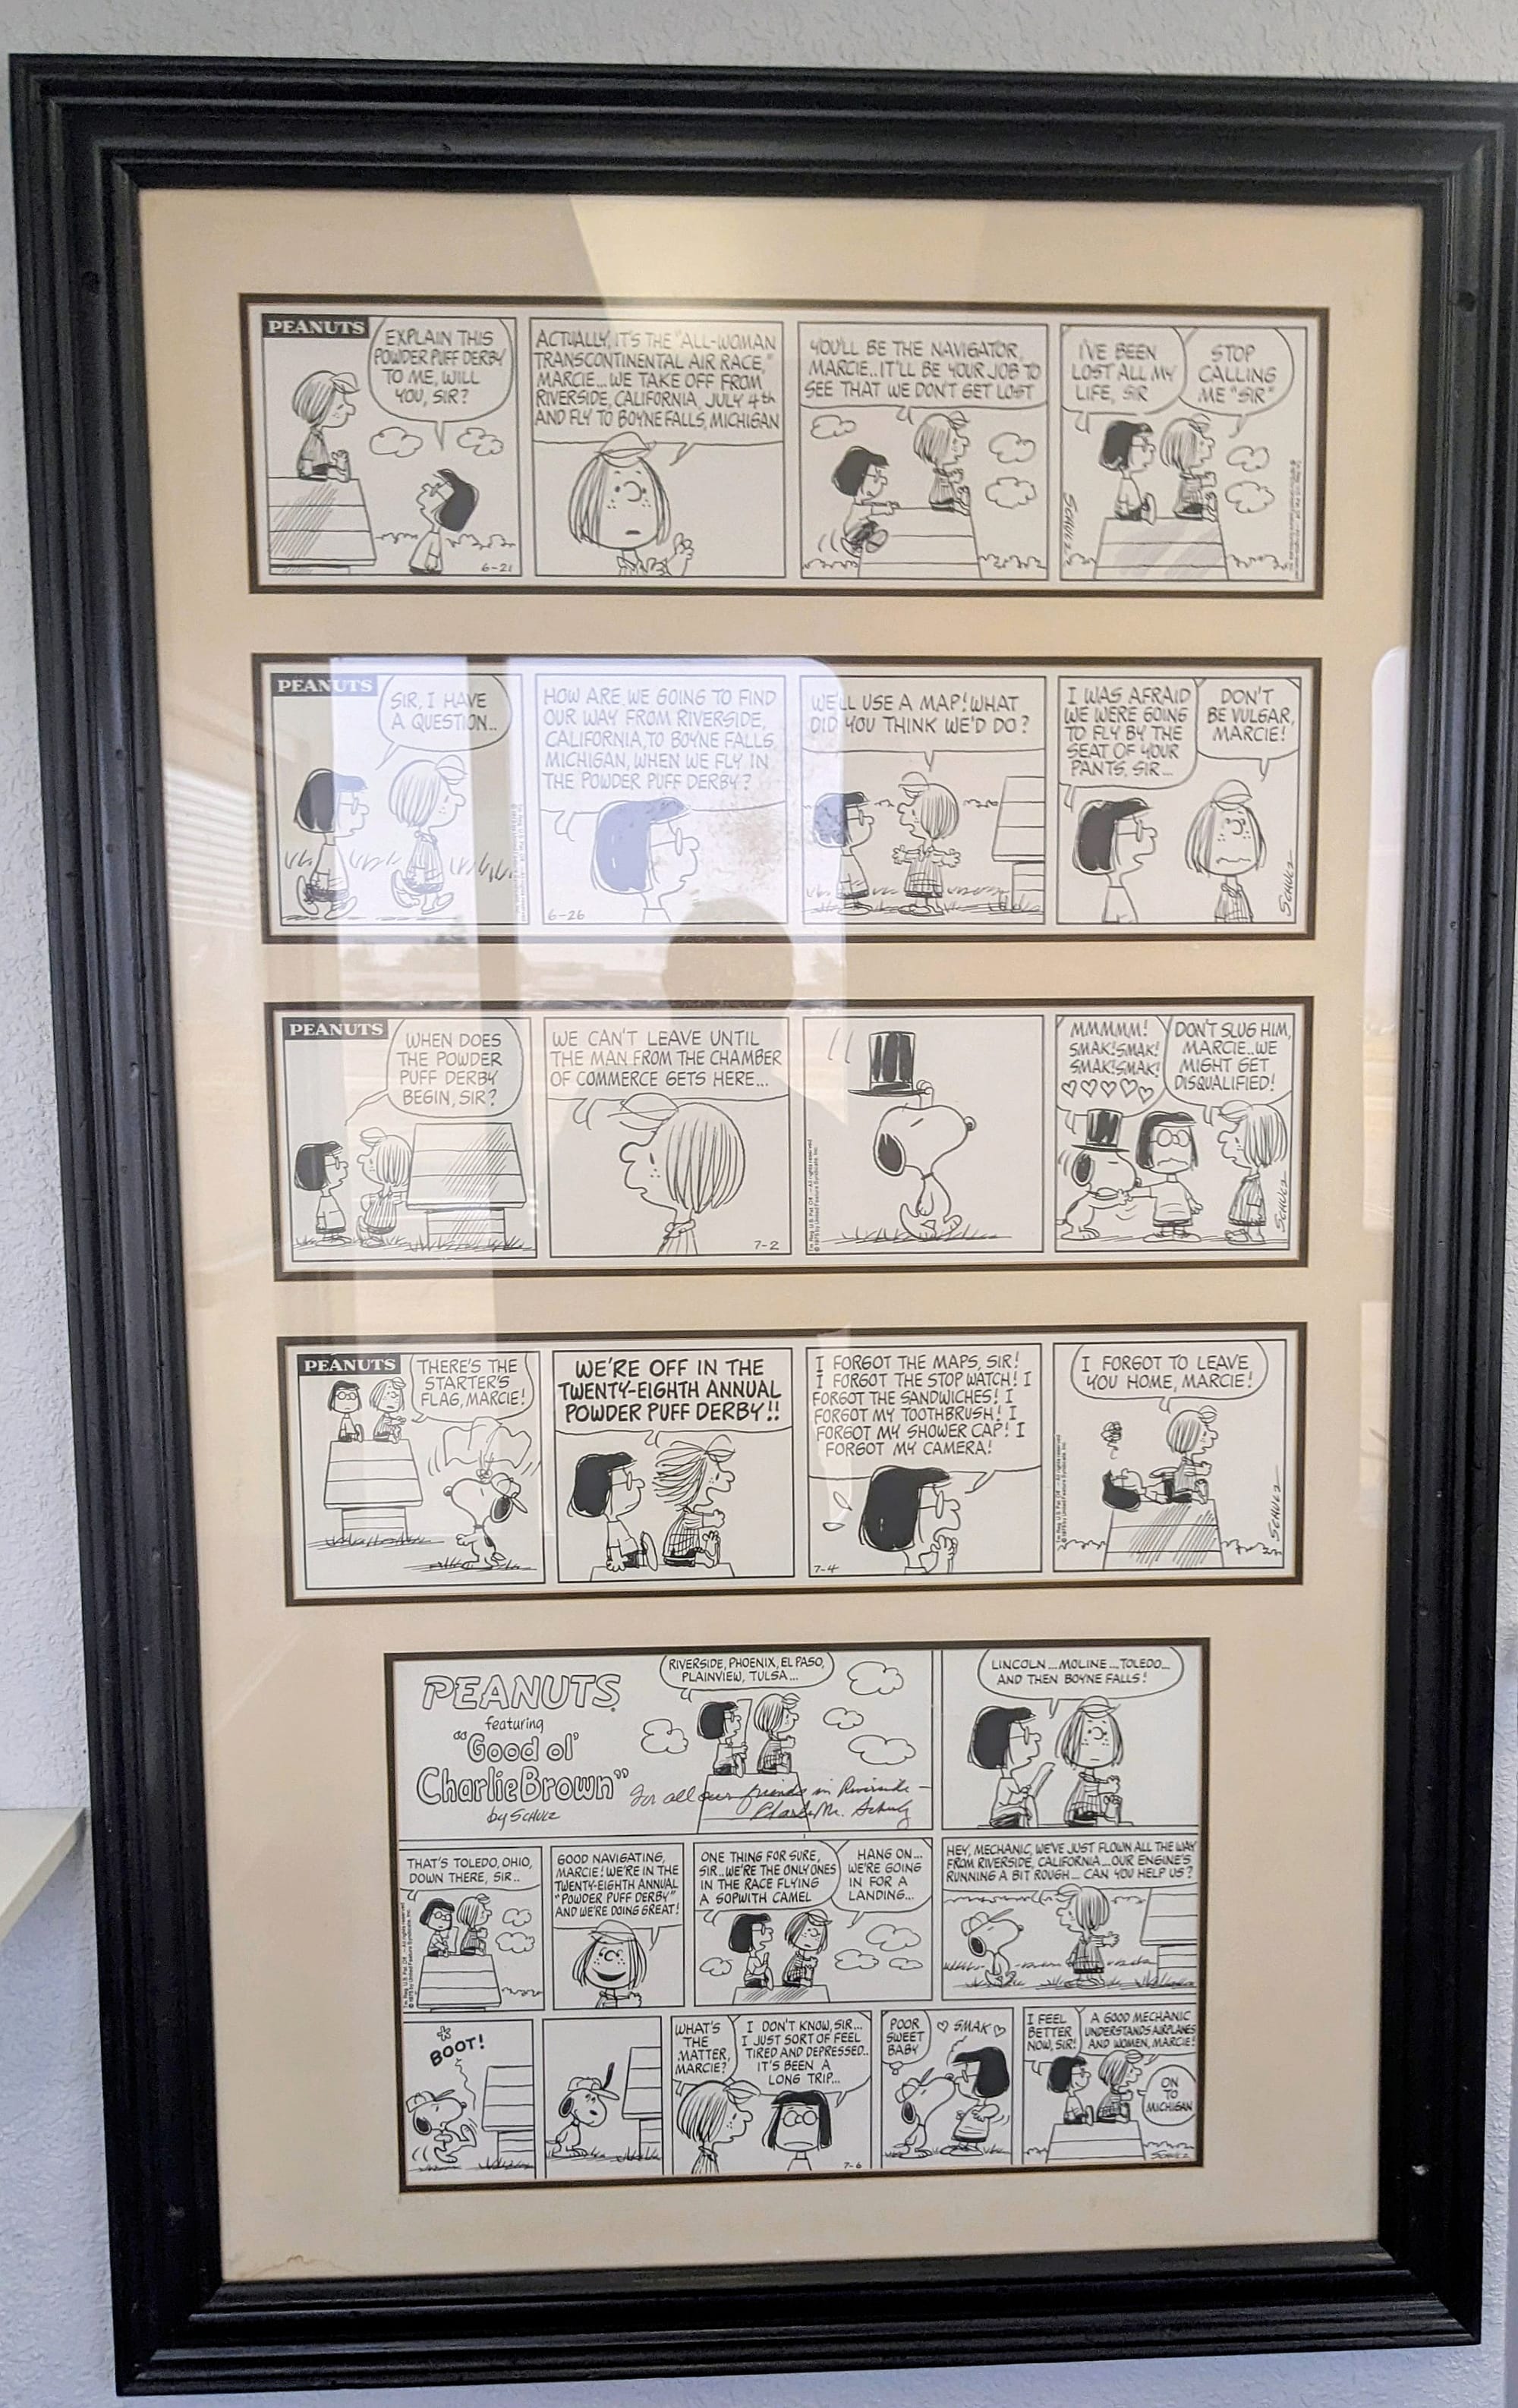 PEANUTS
EXPLAIN THIS
POWDER PUFF DERBY
TO ME, WILL
YOU, SIR?
6-21
ACTUALLY, IT'S THE "ALL-WOMAN
TRANSCONTINENTAL AIR RACE,"
MARCIE...WE TAKE OFF FROM
RIVERSIDE, CALIFORNIA, JULY 4th
AND FLY TO BOYNE FALLS, MICHIGAN
YOU'LL BE THE NAVIGATOR,
MARCIE..IT'LL BE YOUR JOB TO
SEE THAT WE DON'T GET LOST
I'VE BEEN
LOST ALL MY
LIFE, SIR
STOP
CALLING
ME "SIR"
SCHULZ
PEANUTS
SIR, I HAVE
A QUESTION...
HOW ARE WE GOING TO FIND
OUR WAY FROM RIVERSIDE,
CALIFORNIA, TO BOYNE FALLS,
MICHIGAN, WHEN WE FLY IN
THE POWDER PUFF DERBY?
6-26
WE'LL USE A MAP! WHAT
DID YOU THINK WE'D DO?
I WAS AFRAID
WE WERE GOING
TO FLY BY THE
SEAT OF YOUR
PANTS, SIR...
DON'T
BE VULGAR,
MARCIE!
SCHULZ
PEANUTS
WHEN DOES
THE POWDER
PUFF DERBY
BEGIN, SIR?
WE CAN'T LEAVE UNTIL
THE MAN FROM THE CHAMBER
OF COMMERCE GETS HERE...
7-2
Tm. Reg. U.S. Pat. Off.—All rights reserved
© 1975 by United Feature Syndicate, Inc.
MMMMM!
SMAK! SMAK!
SMAK! SMAK!
♡♡♡♡♡
DON'T SLUG HIM,
MARCIE..WE
MIGHT GET
DISQUALIFIED!
SCHULZ
PEANUTS
THERE'S THE
STARTER'S
FLAG, MARCIE!
WE'RE OFF IN THE
TWENTY-EIGHTH ANNUAL
POWDER PUFF DERBY!!
I FORGOT THE MAPS, SIR!
I FORGOT THE STOP WATCH! I
FORGOT THE SANDWICHES! I
FORGOT MY TOOTHBRUSH! I
FORGOT MY SHOWER CAP! I
FORGOT MY CAMERA!
7-4
Tm. Reg. U.S. Pat. Off.—All rights reserved
© 1975 by United Feature Syndicate, Inc.
I FORGOT TO LEAVE
YOU HOME, MARCIE!
SCHULZ
PEANUTS
featuring
"Good ol'
Charlie Brown"
by SCHULZ
RIVERSIDE, PHOENIX, EL PASO,
PLAINVIEW, TULSA...
For all our friends in Riverside —
Charles M. Schulz
LINCOLN...MOLINE...TOLEDO...
AND THEN BOYNE FALLS!
THAT'S TOLEDO, OHIO,
DOWN THERE, SIR..
Tm. Reg. U.S. Pat. Off.—All rights reserved
© 1975 by United Feature Syndicate, Inc.
GOOD NAVIGATING,
MARCIE! WE'RE IN THE
TWENTY-EIGHTH ANNUAL
"POWDER PUFF DERBY"
AND WE'RE DOING GREAT!
ONE THING FOR SURE,
SIR..WE'RE THE ONLY ONES
IN THE RACE FLYING
A SOPWITH CAMEL
HANG ON...
WE'RE GOING
IN FOR A
LANDING...
HEY, MECHANIC, WE'VE JUST FLOWN ALL THE WAY
FROM RIVERSIDE, CALIFORNIA...OUR ENGINE'S
RUNNING A BIT ROUGH... CAN YOU HELP US?
BOOT!
WHAT'S
THE
MATTER,
MARCIE?
I DON'T KNOW, SIR...
I JUST SORT OF FEEL
TIRED AND DEPRESSED..
IT'S BEEN A
LONG TRIP...
7-6
POOR
SWEET
BABY
♡ SMAK ♡
I FEEL
BETTER
NOW, SIR!
A GOOD MECHANIC
UNDERSTANDS AIRPLANES
AND WOMEN, MARCIE!
ON
TO
MICHIGAN
SCHULZ